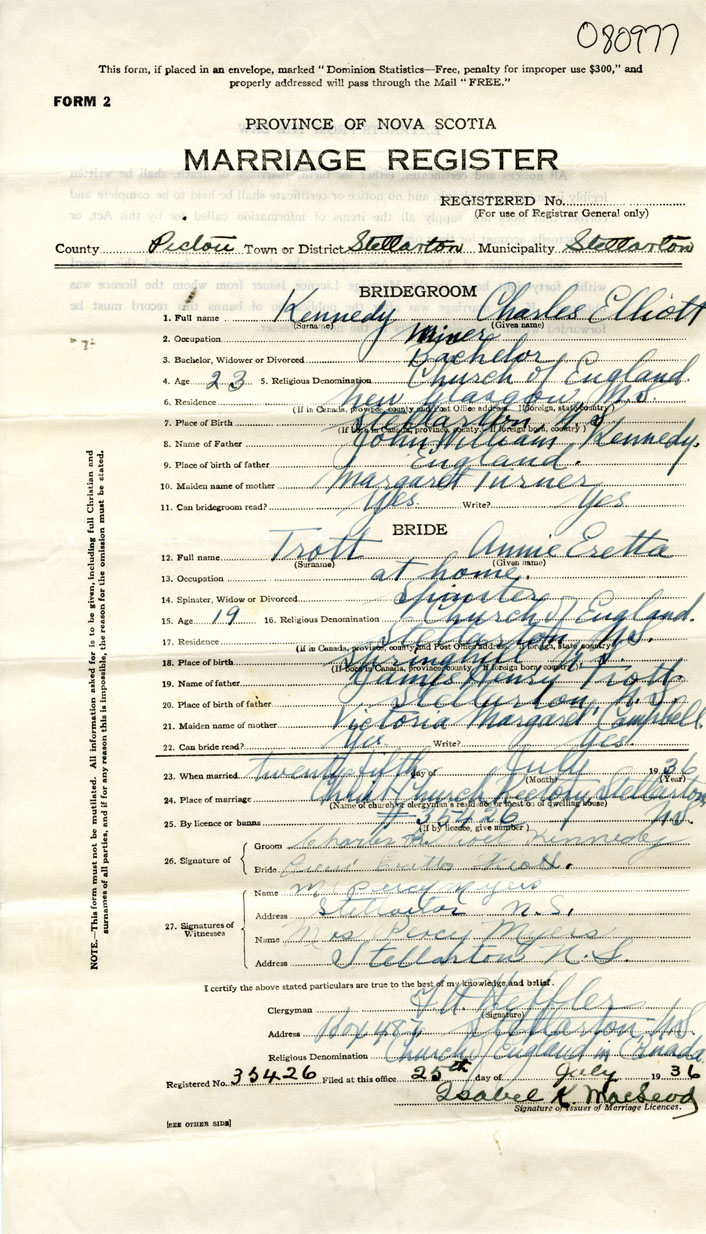 080977
This form, if placed in an envelope, marked "Dominion Statistics—Free, penalty for improper use $300," and
properly addressed will pass through the Mail "FREE."
FORM 2
PROVINCE OF NOVA SCOTIA
MARRIAGE REGISTER
REGISTERED No.
(For use of Registrar General only)
County Pictou Town or District Stellarton Municipality Stellarton
BRIDEGROOM
1. Full name Kennedy Charles Elliott
(Surname) (Given name)
2. Occupation Miner
3. Bachelor, Widower or Divorced Bachelor
4. Age 23 5. Religious Denomination Church of England
6. Residence New Glasgow, N.S.
(If in Canada, province, county and Post Office address. If foreign, state country)
7. Place of Birth Stellarton N.S.
(If born in Canada, province, county. If foreign born, country)
8. Name of Father John William Kennedy.
9. Place of birth of father England.
10. Maiden name of mother Margaret Turner
11. Can bridegroom read? Yes Write? Yes
BRIDE
12. Full name Trott Annie Eretta
(Surname) (Given name)
13. Occupation at home.
14. Spinster, Widow or Divorced Spinster
15. Age 19 16. Religious Denomination Church of England.
17. Residence Stellarton N.S.
(If in Canada, province, county and Post Office address. If foreign, state country)
18. Place of birth Springhill N.S.
(If born in Canada, province, county. If foreign born, country)
19. Name of father James Henry Trott
20. Place of birth of father Stellarton, N.S.
21. Maiden name of mother Victoria Margaret Campbell.
22. Can bride read? Yes Write? Yes.
23. When married twenty fifth day of July 1936
(Month) (Year)
24. Place of marriage Christ Church Rectory, Stellarton
(Name of church or clergyman's residence or location of dwelling house)
25. By licence or banns # 35426 N.S.
(If by licence, give number)
26. Signature of
Groom Charles Kennedy
Bride Trott.
27. Signatures of Witnesses
Name Percy Myers
Address Stellarton N.S.
Name Mrs Percy Myers
Address Stellarton N.S.
I certify the above stated particulars are true to the best of my knowledge and belief.
Clergyman Heffler
(Signature)
Address Box 487 Stellarton N.S.
Religious Denomination Church of England in Canada.
Registered No. 35426 Filed at this office 25th day of July 1936
Isabel K. MacLeod
Signature of Issuer of Marriage Licences.
[SEE OTHER SIDE]
NOTE.—This form must not be mutilated. All information asked for is to be given, including full Christian and
surnames of all parties, and if for any reason this is impossible, the reason for the omission must be stated.